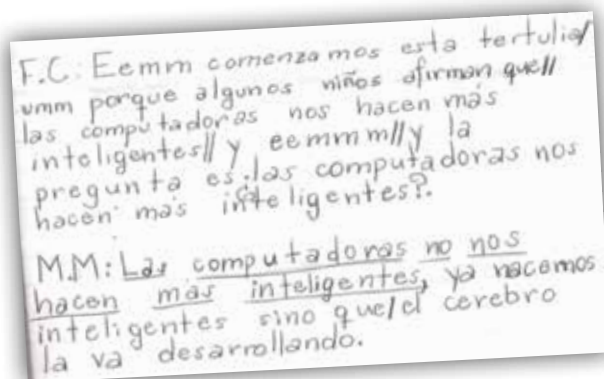 F.C: Eemm comenzamos esta tertulia/
umm porque algunos niños afirman que//
las computadoras nos hacen más
inteligentes// y eemmm//y la
pregunta es ¿las computadoras nos
hacen más inteligentes?.
M.M: Las computadoras no nos
hacen mas inteligentes, ya nacemos
inteligentes sino que/el cerebro
la va desarrollando.